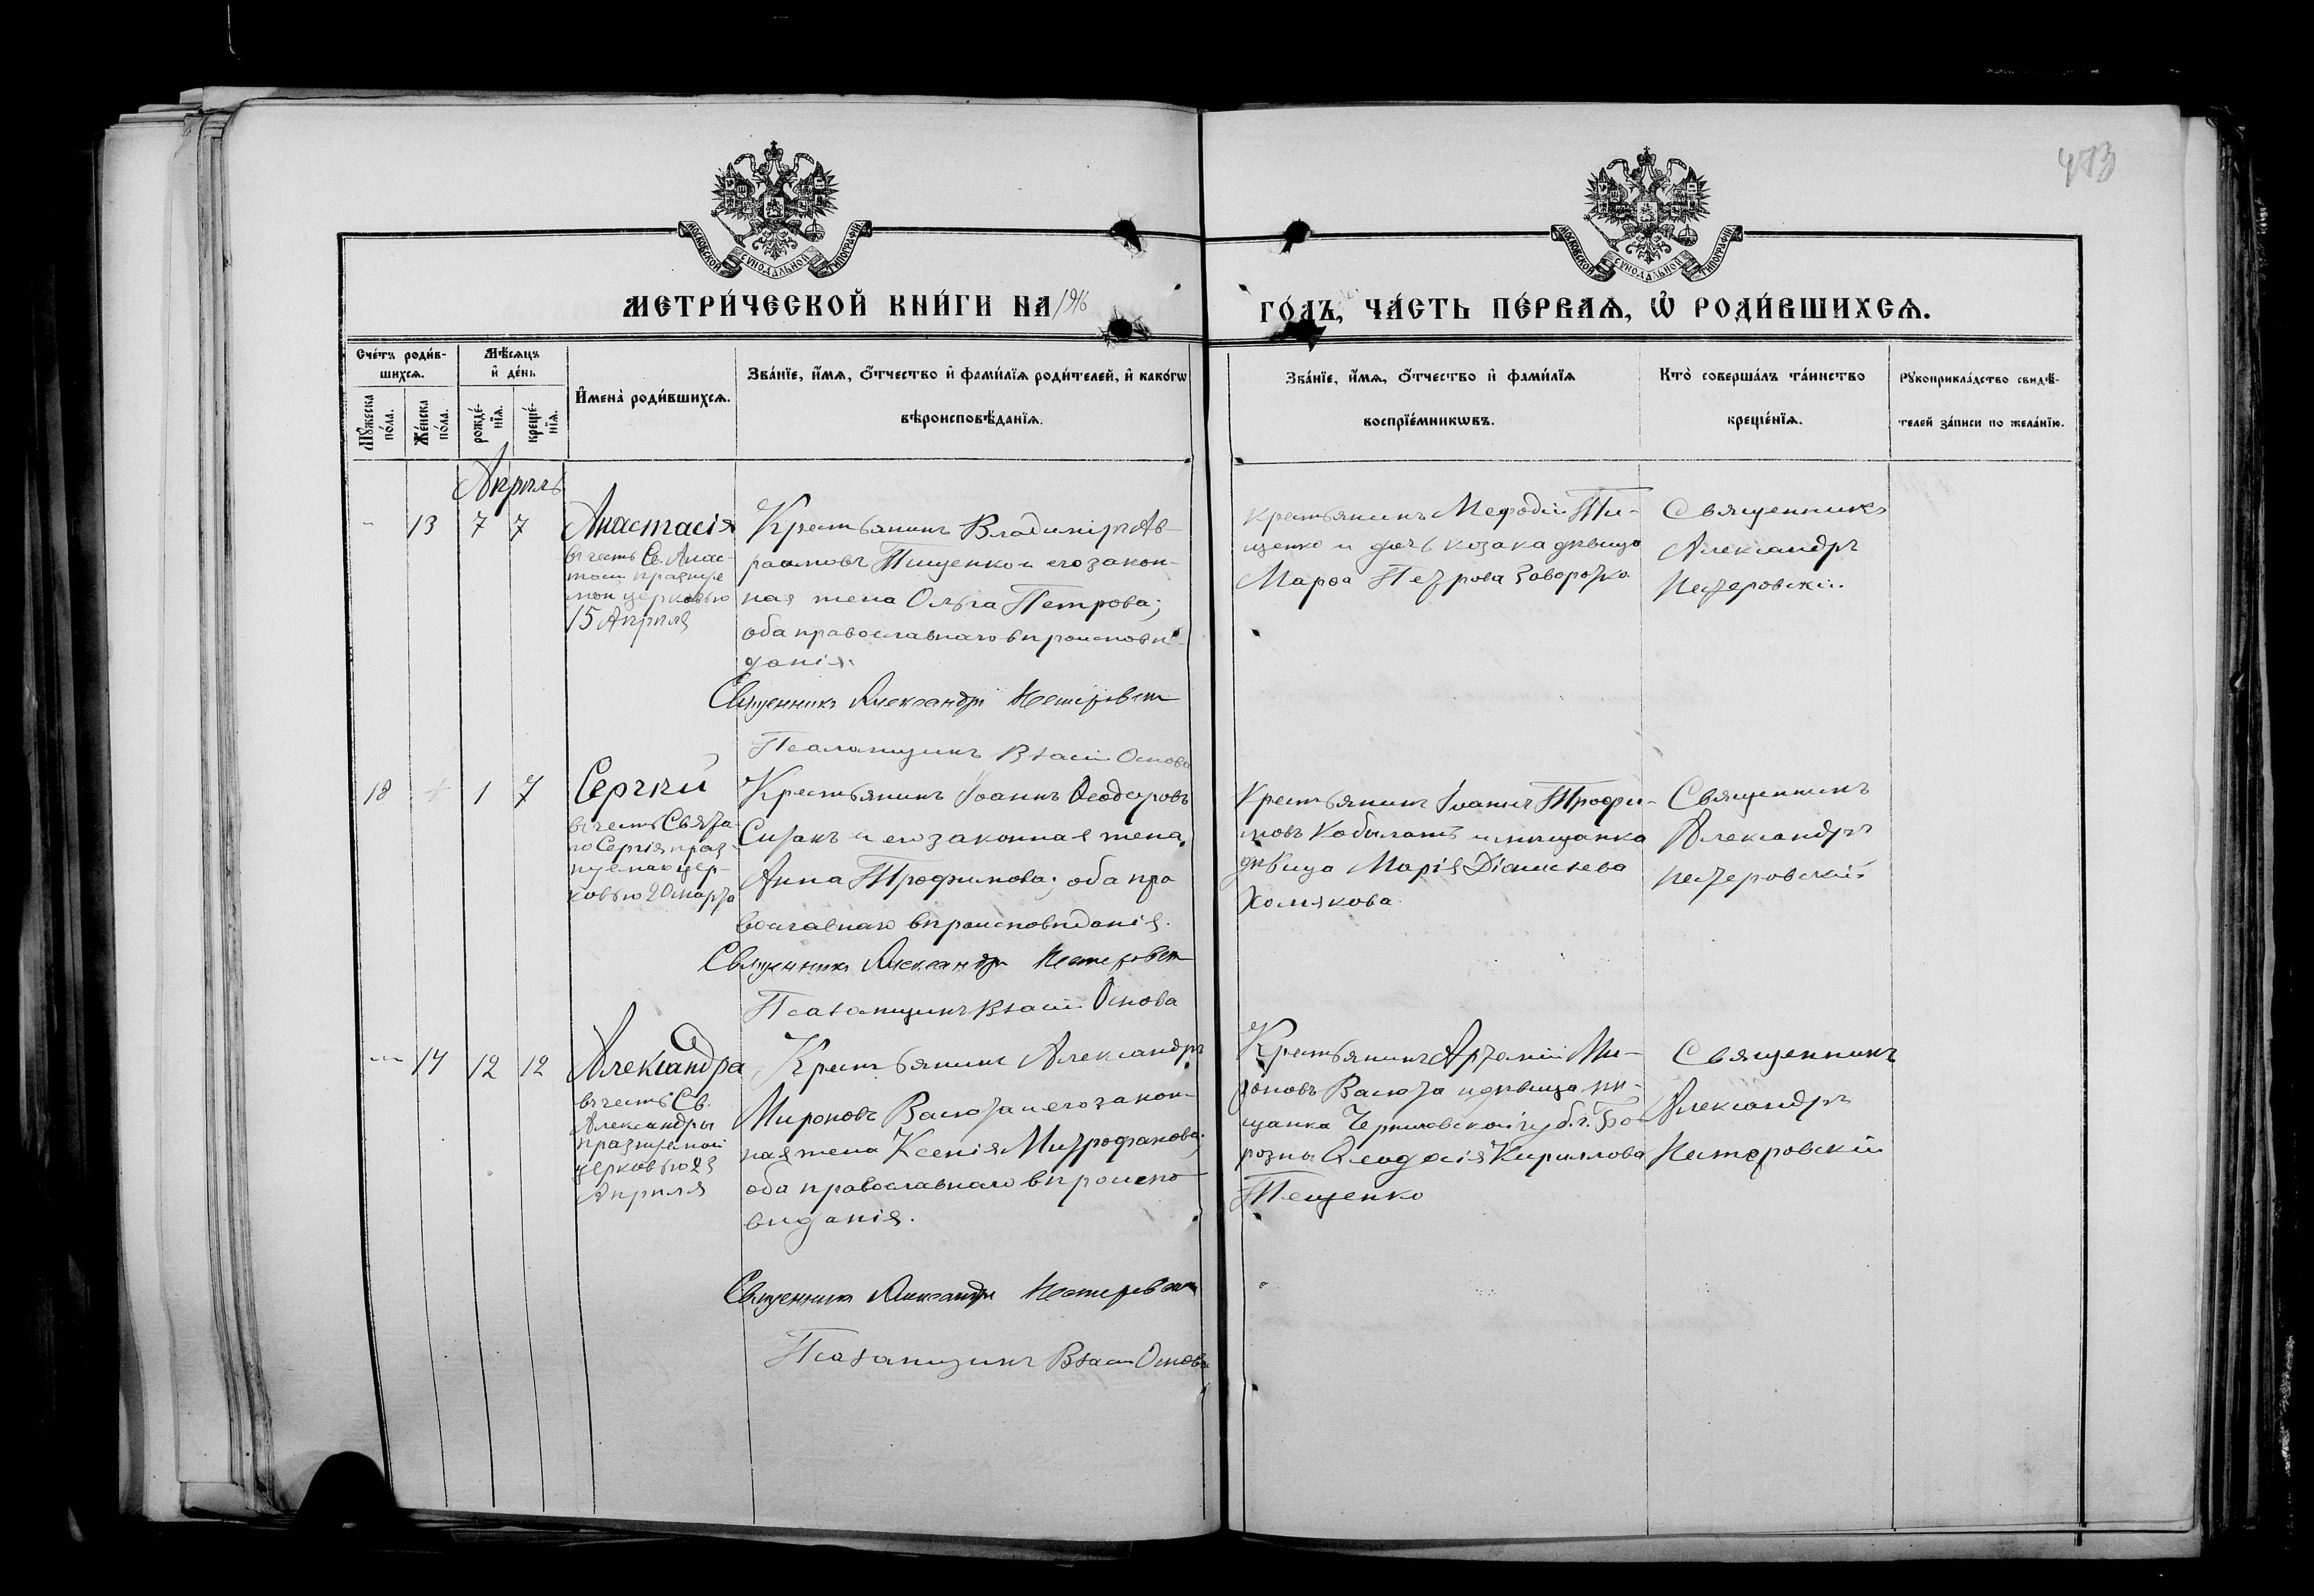 473
МОСКОВСКОЙ СѴНОДАЛЬНОЙ ТИПОГРАФІИ
МОСКОВСКОЙ СѴНОДАЛЬНОЙ ТИПОГРАФІИ
МЕТРИ́ЧЕСКОЙ КНИ́ГИ НА 1916
ГО́ДЪ, ЧА́СТЬ ПЕ́РВАѦ, Ѡ҆ РОДИ́ВШИХСѦ.
Сче́тъ роди́в-
шихсѧ.
Му́жеска
по́ла.
Же́нска
по́ла.
Мѣ́сѧцъ
и҆ де́нь
рожде́-
нїѧ.
креще́-
нїѧ.
И҆мена̀ роди́вшихсѧ.
Зва́нїе, и҆́мѧ, ѻ҆́тчество и҆ фами́лїѧ роди́телей, и҆ како́гѡ
вѣроисповѣ́данїѧ.
Зва́нїе, и҆́мѧ, ѻ҆́тчество и҆ фами́лїѧ
воспрїе́мникѡвъ.
Кто̀ соверша́лъ та́инство
креще́нїѧ.
Рꙋкоприкла́дство свидѣ́-
телей за́писи по жела́нїю.
Апрѣль
- 13 7 7
Анастасія
въ честь Св. Анас-
тасіи празнуе
мой церковью
15 Апрѣля
Крестьянинъ Владиміръ Ав-
раамовъ Пищенко и его закон-
ная жена Ольга Петрова;
оба православнаго вѣроисповѣ-
данія.
Священникъ Александръ Нестеровскій
Псаломщикъ Основа
крестьянинъ Мефодій Пи-
щенко и дочь козака дѣвица
Марѳа Петрова Заворотько
Священникъ
Александръ
Нестеровскій.
18 1 7
Сергѣй
въ честь Свята-
го Сергія праз-
нуемаго цер-
ковью 20 марта
Крестьянинъ Іоаннъ Ѳеодоровъ
Ситакъ и его законная жена
Анна Трофимова; оба пра
вославнаго вѣроисповѣданія.
Священникъ Александръ Нестеровскій
Псаломщикъ Основа
Крестьянинъ Іоаннъ Трофи-
мовъ Кобылатъ и мѣщанка
дѣвица Марія Діонисіева
Хомякова.
Священникъ
Александръ
Нестеровскій
- 14 12 12
Александра
въ честь Св.
Александры
празнуемой
церковью 23
Апрѣля
Крестьянинъ Александръ
Мироновъ Васюта и его закон-
ная жена Ксенія Митрофанова;
оба православнаго вѣроиспо
вѣданія.
Священникъ Александръ Нестеровскій
Псаломщикъ Основа
Крестьянинъ Артемій Ми-
роновъ Васюта и дѣвица мѣ-
щанка Черниговской губ. г. Бо-
розны Ѳеодосія Кириллова
Тещенко
Священникъ
Александръ
Нестеровскій